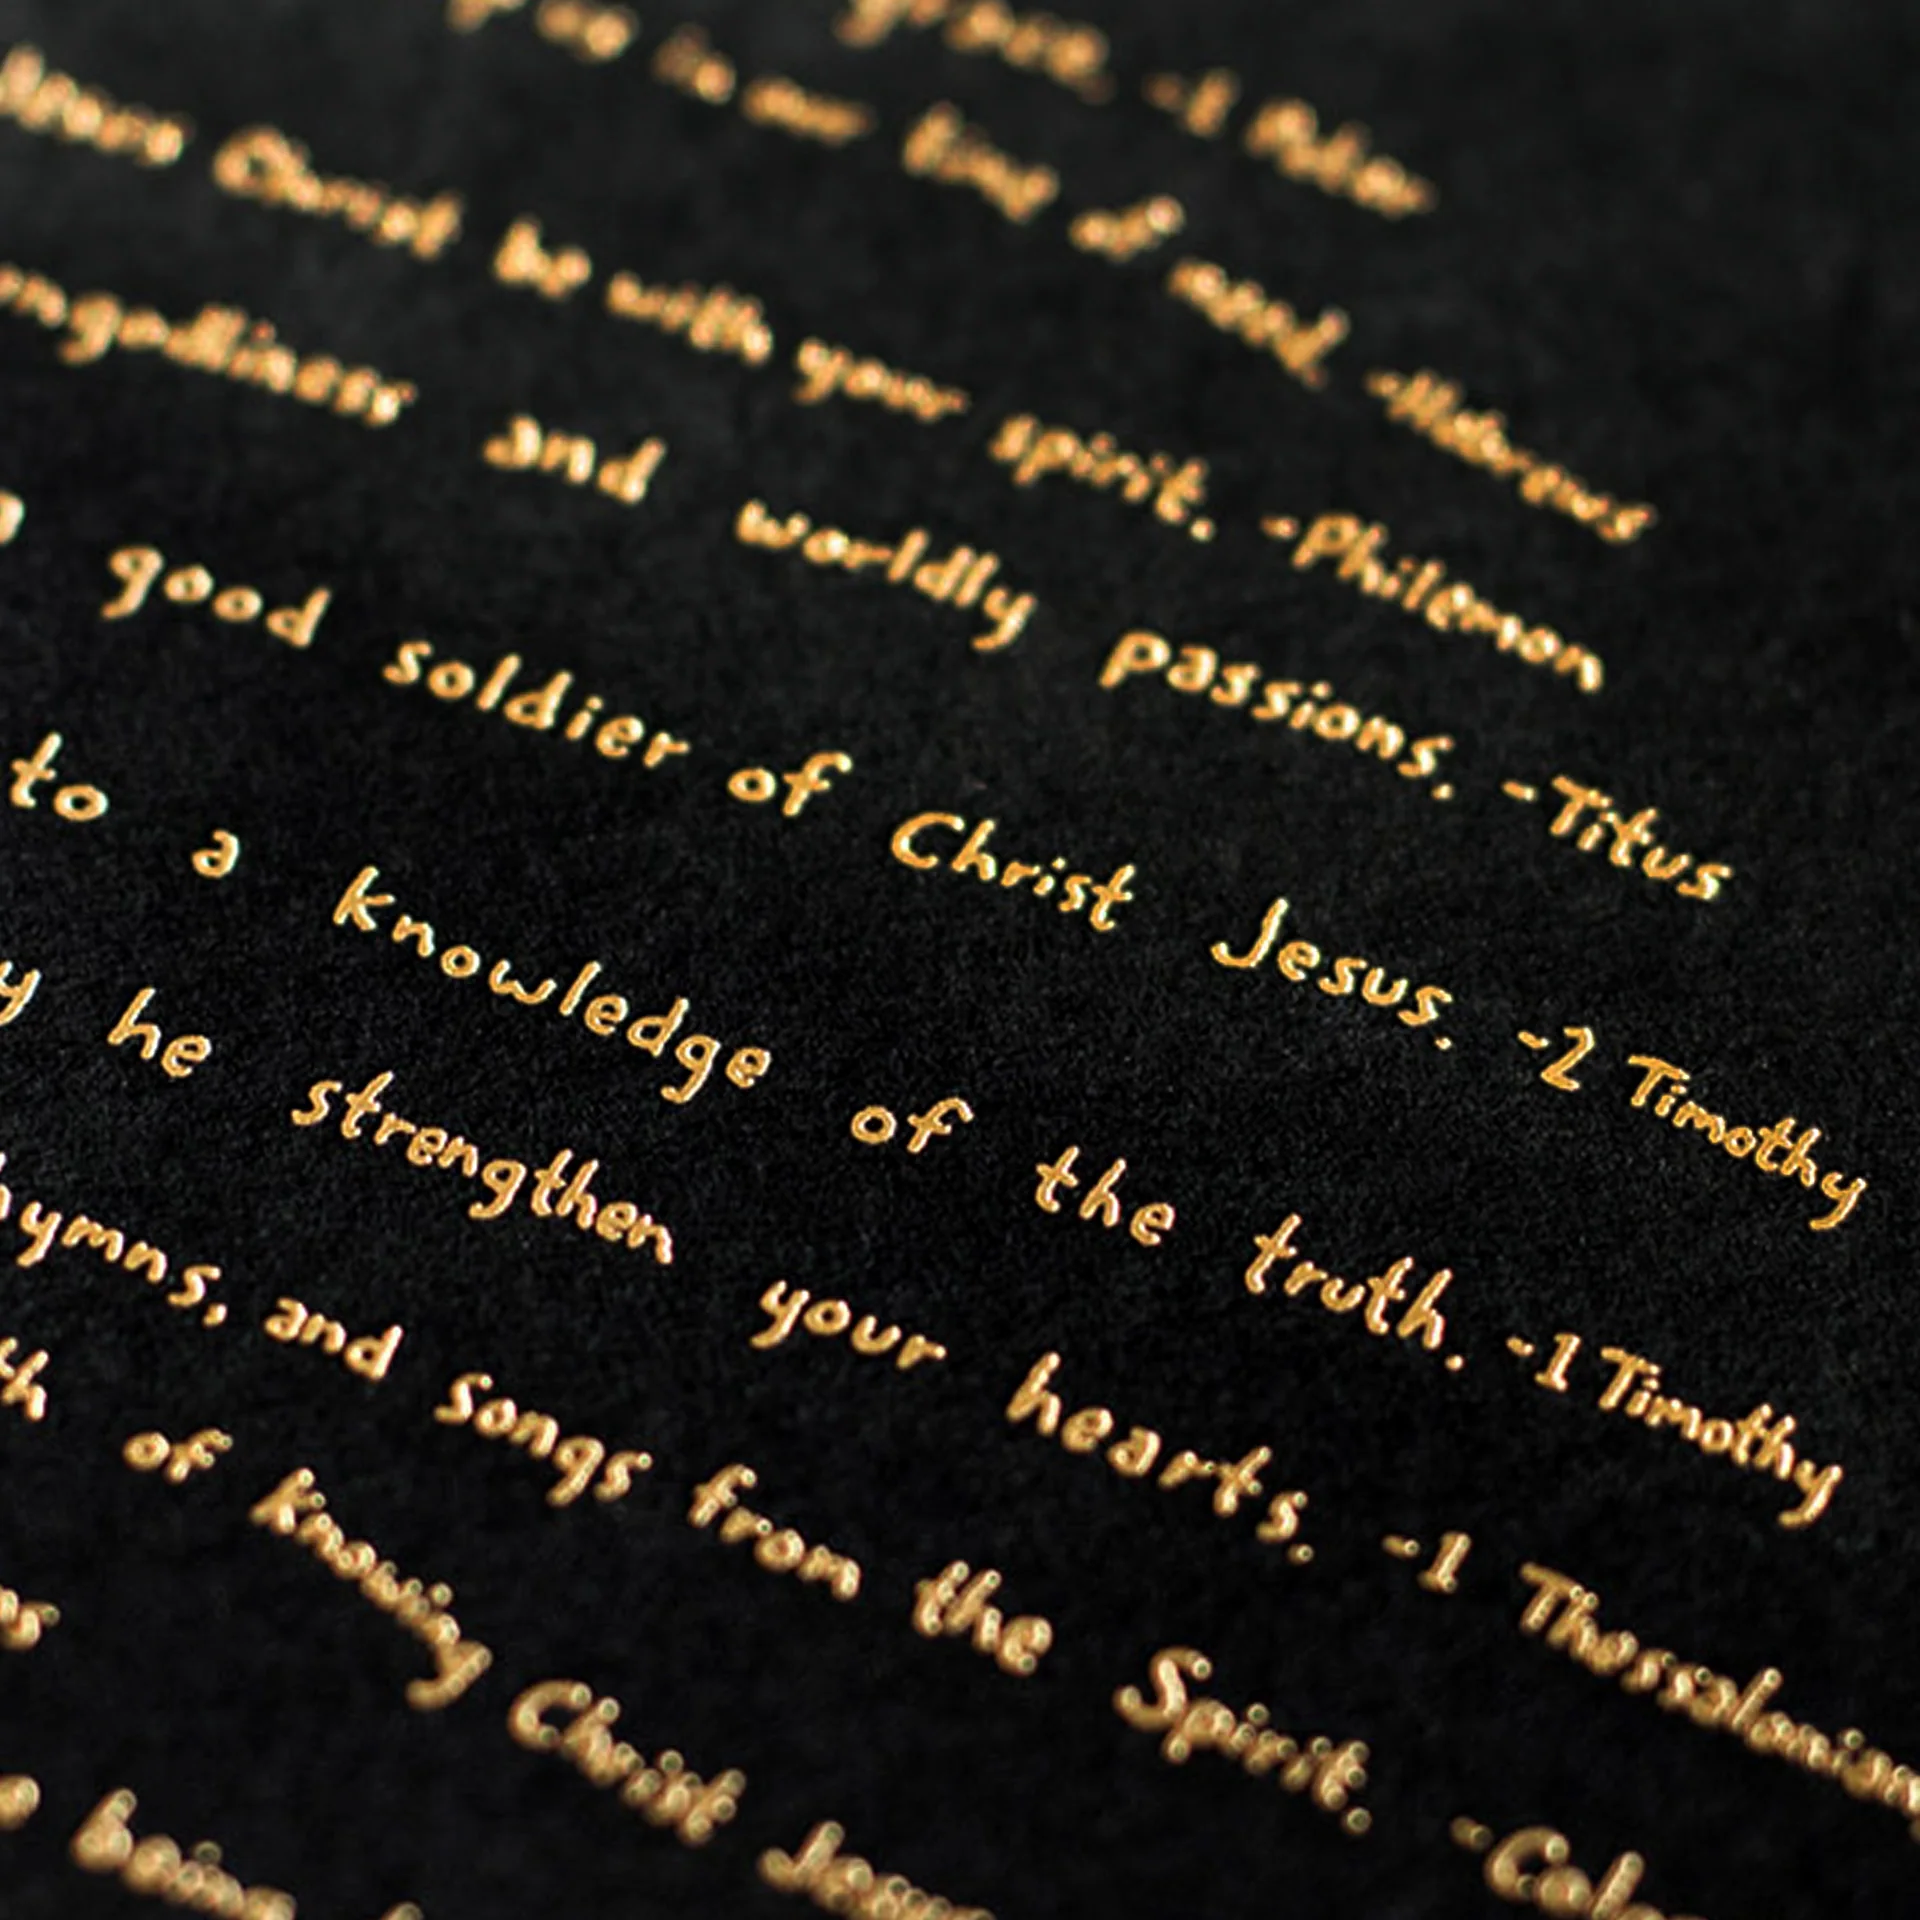 grace. -1 Peter
in our time of need. -Hebrews
Christ be with your spirit. -Philemon
and worldly passions. -Titus
good soldier of Christ Jesus. -2 Timothy
to a knowledge of the truth. -1 Timothy
he strengthen your hearts. -1 Thessalonian
hymns, and songs from the Spirit. -Col
of knowing Christ Jesus
being